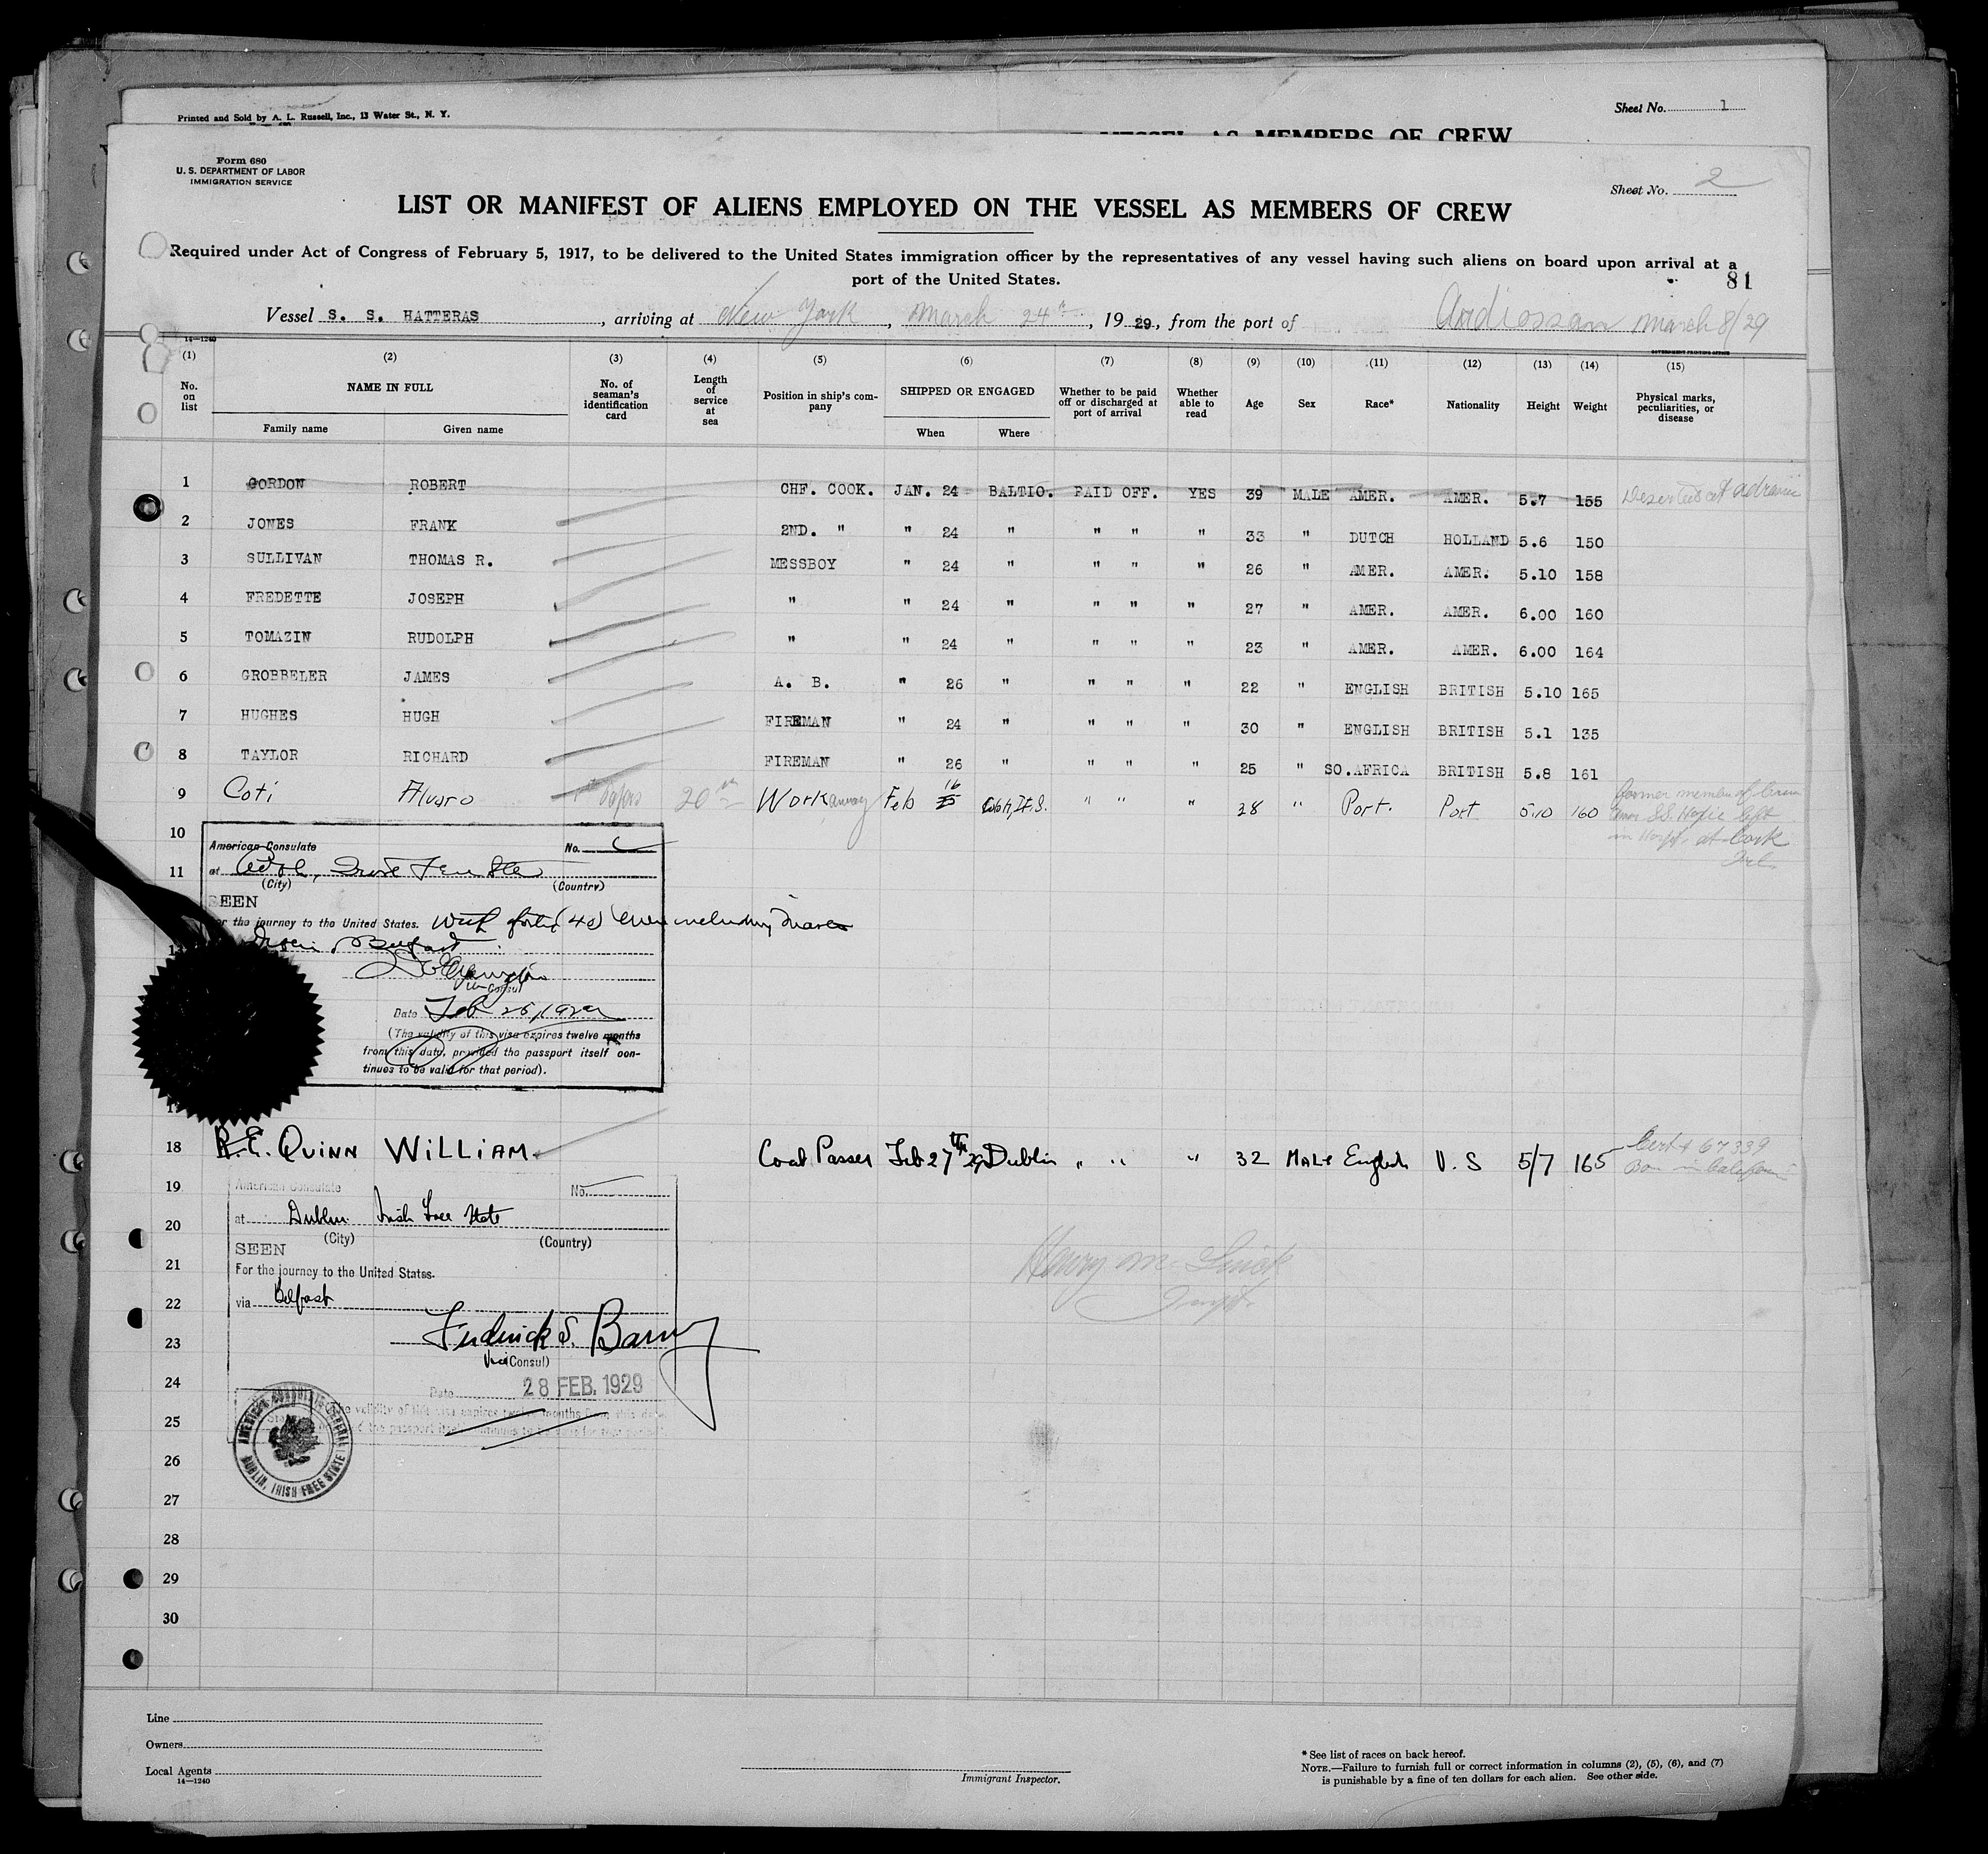 Printed and Sold by A. L. Russell, Inc., 13 Water St., N. Y.
Sheet No. 1
VESSEL AS MEMBERS OF CREW
Form 680
U. S. DEPARTMENT OF LABOR
IMMIGRATION SERVICE
Sheet No. 2
LIST OR MANIFEST OF ALIENS EMPLOYED ON THE VESSEL AS MEMBERS OF CREW
Required under Act of Congress of February 5, 1917, to be delivered to the United States immigration officer by the representatives of any vessel having such aliens on board upon arrival at a
port of the United States.
81
Vessel S. S. HATTERAS, arriving at New York, March 24th, 1929, from the port of Ardrossan March 8/29
14—1240
GOVERNMENT PRINTING OFFICE
(1) (2) (3) (4) (5) (6) (7) (8) (9) (10) (11) (12) (13) (14) (15)
No. on list NAME IN FULL No. of seaman's identification card Length of service at sea Position in ship's company SHIPPED OR ENGAGED Whether to be paid off or discharged at port of arrival Whether able to read Age Sex Race* Nationality Height Weight Physical marks, peculiarities, or disease
Family name Given name When Where
1 GORDON ROBERT CHF. COOK. JAN. 24 BALTIO. PAID OFF. YES 39 MALE AMER. AMER. 5.7 155 Deserted at
2 JONES FRANK 2ND. " " 24 " " " " 33 " DUTCH HOLLAND 5.6 150
3 SULLIVAN THOMAS R. MESSBOY " 24 " " " " 26 " AMER. AMER. 5.10 158
4 FREDETTE JOSEPH " " 24 " " " " 27 " AMER. AMER. 6.00 160
5 TOMAZIN RUDOLPH " " 24 " " " " 23 " AMER. AMER. 6.00 164
6 GROBBELER JAMES A. B. " 26 " " " " 22 " ENGLISH BRITISH 5.10 165
7 HUGHES HUGH FIREMAN " 24 " " " " 30 " ENGLISH BRITISH 5.1 135
8 TAYLOR RICHARD FIREMAN " 26 " " " " 25 " SO.AFRICA BRITISH 5.8 161
9 Coti Alvaro 20 Workaway Feb 16 Cobh, I.F.S. " " " 28 " Port. Port 5.10 160 former member of crew
S.S. left
in Hospt. at Cork
10
American Consulate No.
11
at Irish Free State
(City) (Country)
SEEN
For the journey to the United States. With forty (40) crew including
Belfast
Vice Consul
Date Feb 1929
(The validity of this visa expires twelve months
from this date, provided the passport itself con-
tinues to be valid for that period).
17
18 R.E. QUINN WILLIAM. Coal Passer Feb 27th 29 Dublin " " " 32 MALE English U.S 5/7 165 Cert # 67339
Born in
19
American Consulate No.
20
at Dublin Irish Free State
(City) (Country)
SEEN
21
For the journey to the United States.
Henry
22
via Belfast
23
Frederick S. Barny
Vice Consul)
24
Date 28 FEB. 1929
25
The validity of this visa expires twelve months from this date
if the passport itself continues to be valid for that period
AMERICAN CONSULATE GENERAL
DUBLIN, IRISH FREE STATE
26
27
28
29
30
Line
Owners
Local Agents
14—1240
Immigrant Inspector.
* See list of races on back hereof.
NOTE.—Failure to furnish full or correct information in columns (2), (5), (6), and (7)
is punishable by a fine of ten dollars for each alien. See other side.